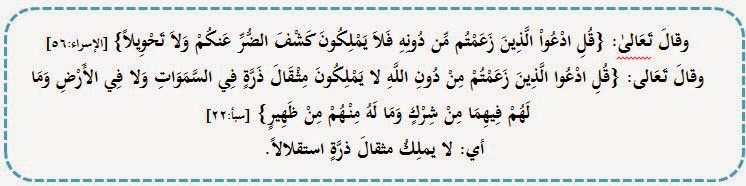 وقالَ تَعَالىٰ: {قُلِ ادْعُواْ الَّذِينَ زَعَمْتُم مِّن دُونِهِ فَلاَ يَمْلِكُونَ كَشْفَ الضُّرِّ عَنكُمْ وَلاَ تَحْوِيلاً} [الإسراء:٥٦]
وقالَ تَعَالى: {قُلِ ادْعُوا الَّذِينَ زَعَمْتُمْ مِنْ دُونِ اللَّهِ لا يَمْلِكُونَ مِثْقَالَ ذَرَّةٍ فِي السَّمَوَاتِ وَلا فِي الأَرْضِ وَمَا
لَهُمْ فِيهِمَا مِنْ شِرْكٍ وَمَا لَهُ مِنْهُمْ مِنْ ظَهِيرٍ} [سبأ:٢٢]
أي: لا يملِكُ مثقالَ ذرَّةٍ استقلالاً.